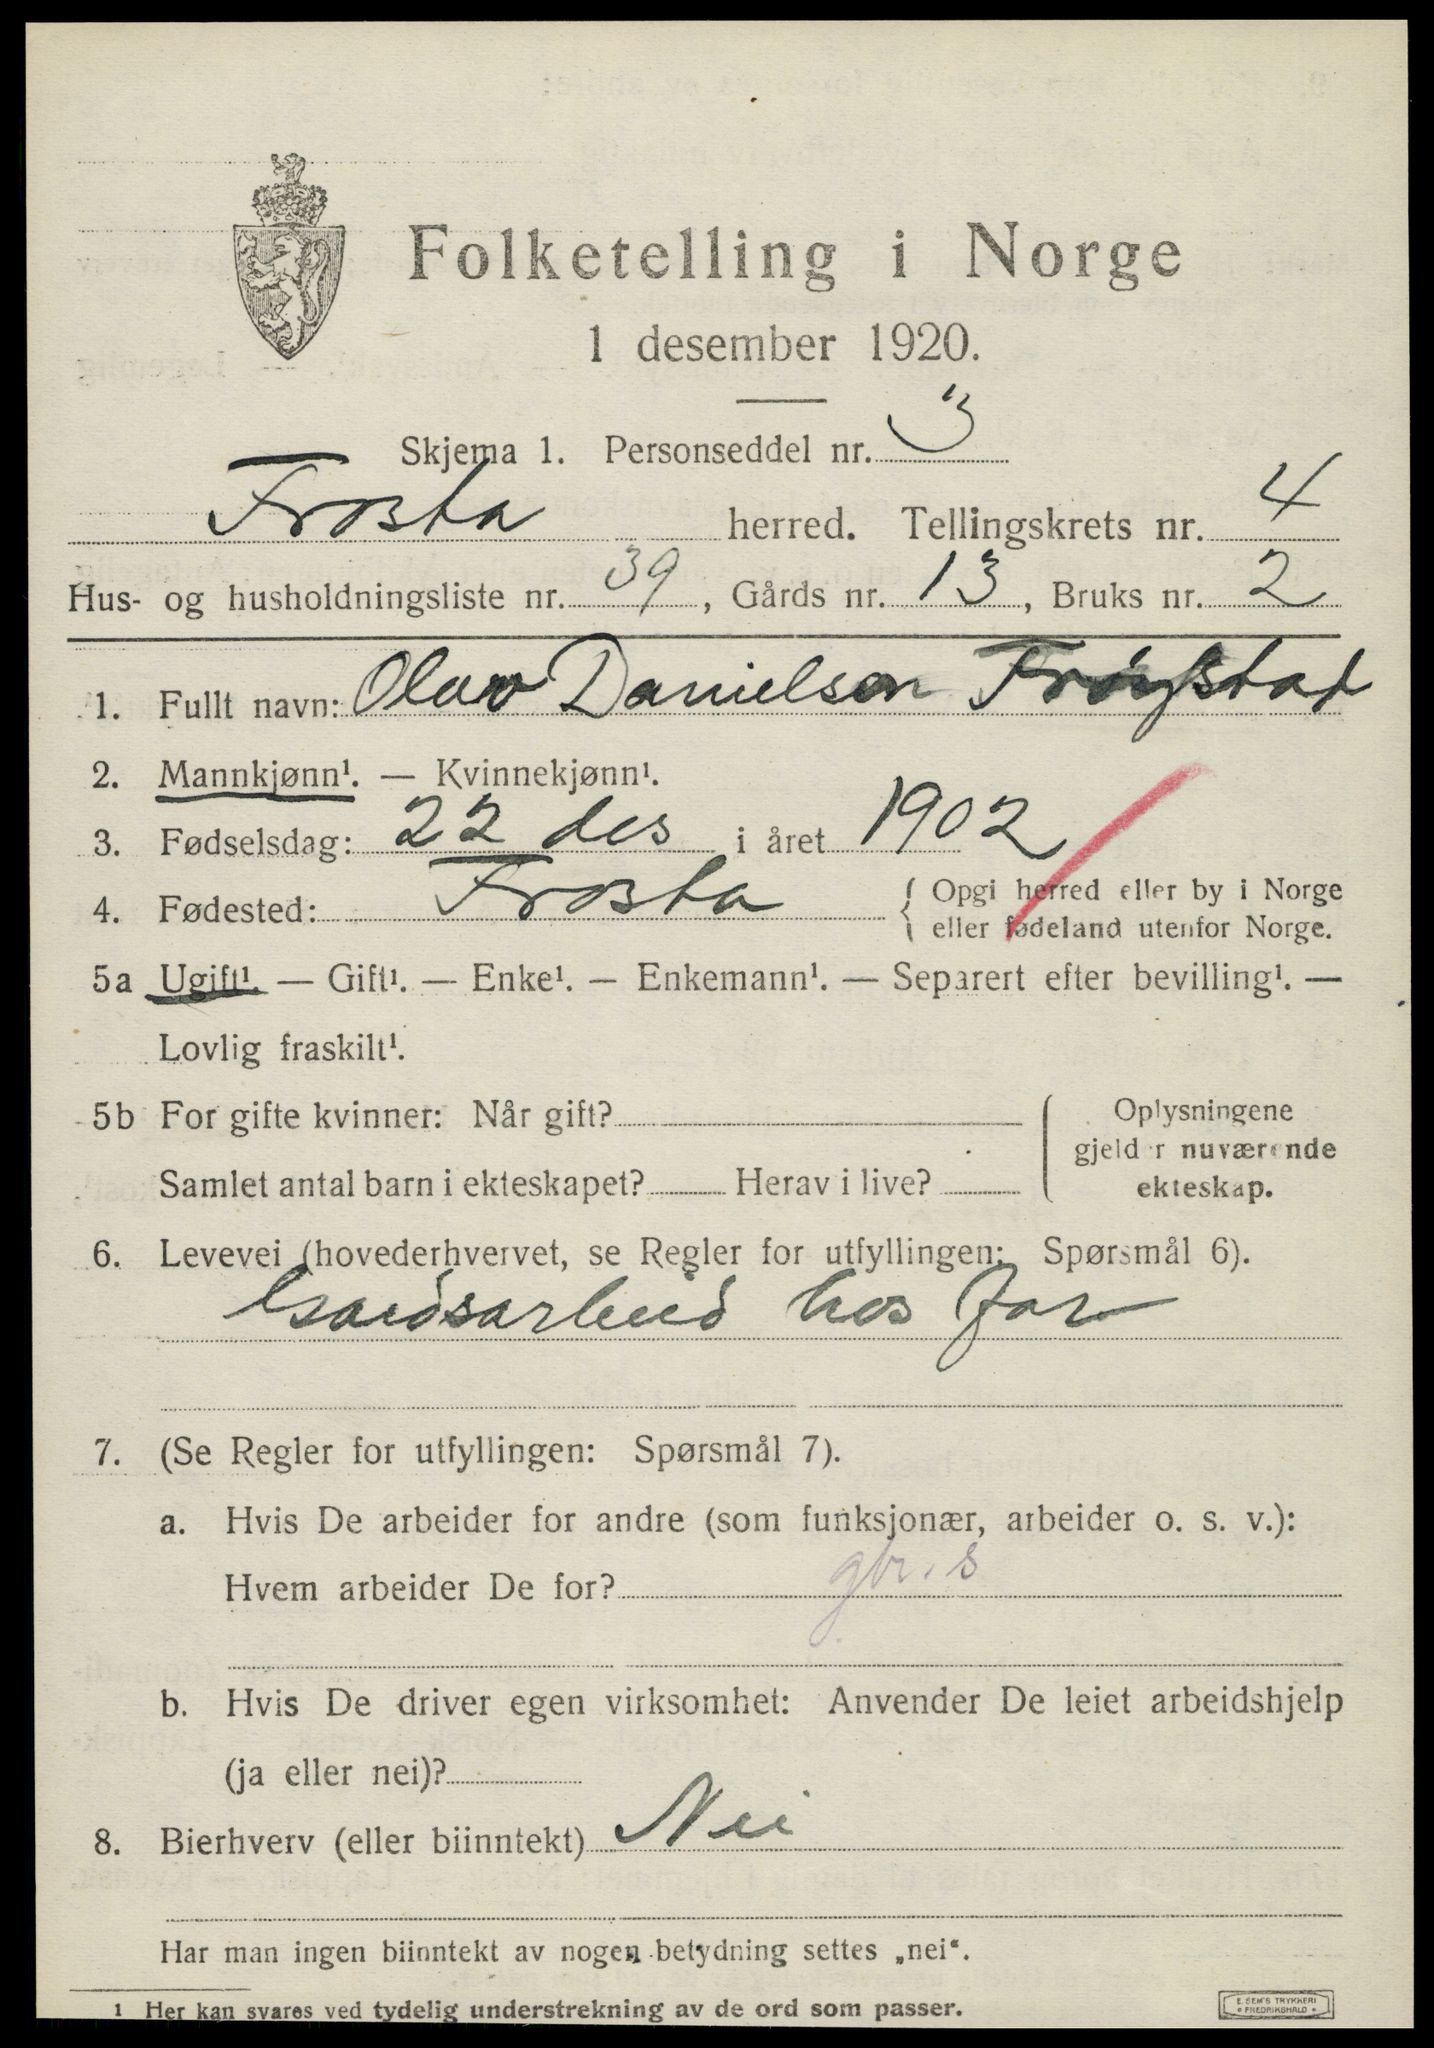 Folketelling i Norge
1 desember 1920.
Skjema 1. Personseddel nr. 3
Frosta herred. Tellingskrets nr. 4
Hus- og husholdningsliste nr. 39, Gårds nr. 13, Bruks nr. 2
1. Fullt navn: Olav Danielsen
2. Mannkjønn¹. — Kvinnekjønn¹.
3. Fødselsdag: 22 des i året 1902
4. Fødested: Frosta { Opgi herred eller by i Norge
eller fødeland utenfor Norge.
5a Ugift¹. — Gift¹. — Enke¹. — Enkemann¹. — Separert efter bevilling¹. —
Lovlig fraskilt¹.
5b For gifte kvinner: Når gift?
Samlet antal barn i ekteskapet? Herav i live?
Oplysningene
gjelder nuværende
ekteskap.
6. Levevei (hovederhvervet, se Regler for utfyllingen: Spørsmål 6).
Gardsarbeid hos far
7. (Se Regler for utfyllingen: Spørsmål 7).
a. Hvis De arbeider for andre (som funksjonær, arbeider o. s. v.):
Hvem arbeider De for? gbr. s
b. Hvis De driver egen virksomhet: Anvender De leiet arbeidshjelp
(ja eller nei)?
8. Bierhverv (eller biinntekt) Nei
Har man ingen biinntekt av nogen betydning settes „nei“.
1 Her kan svares ved tydelig understrekning av de ord som passer.
E. SEM'S TRYKKERI
FREDRIKSHALD